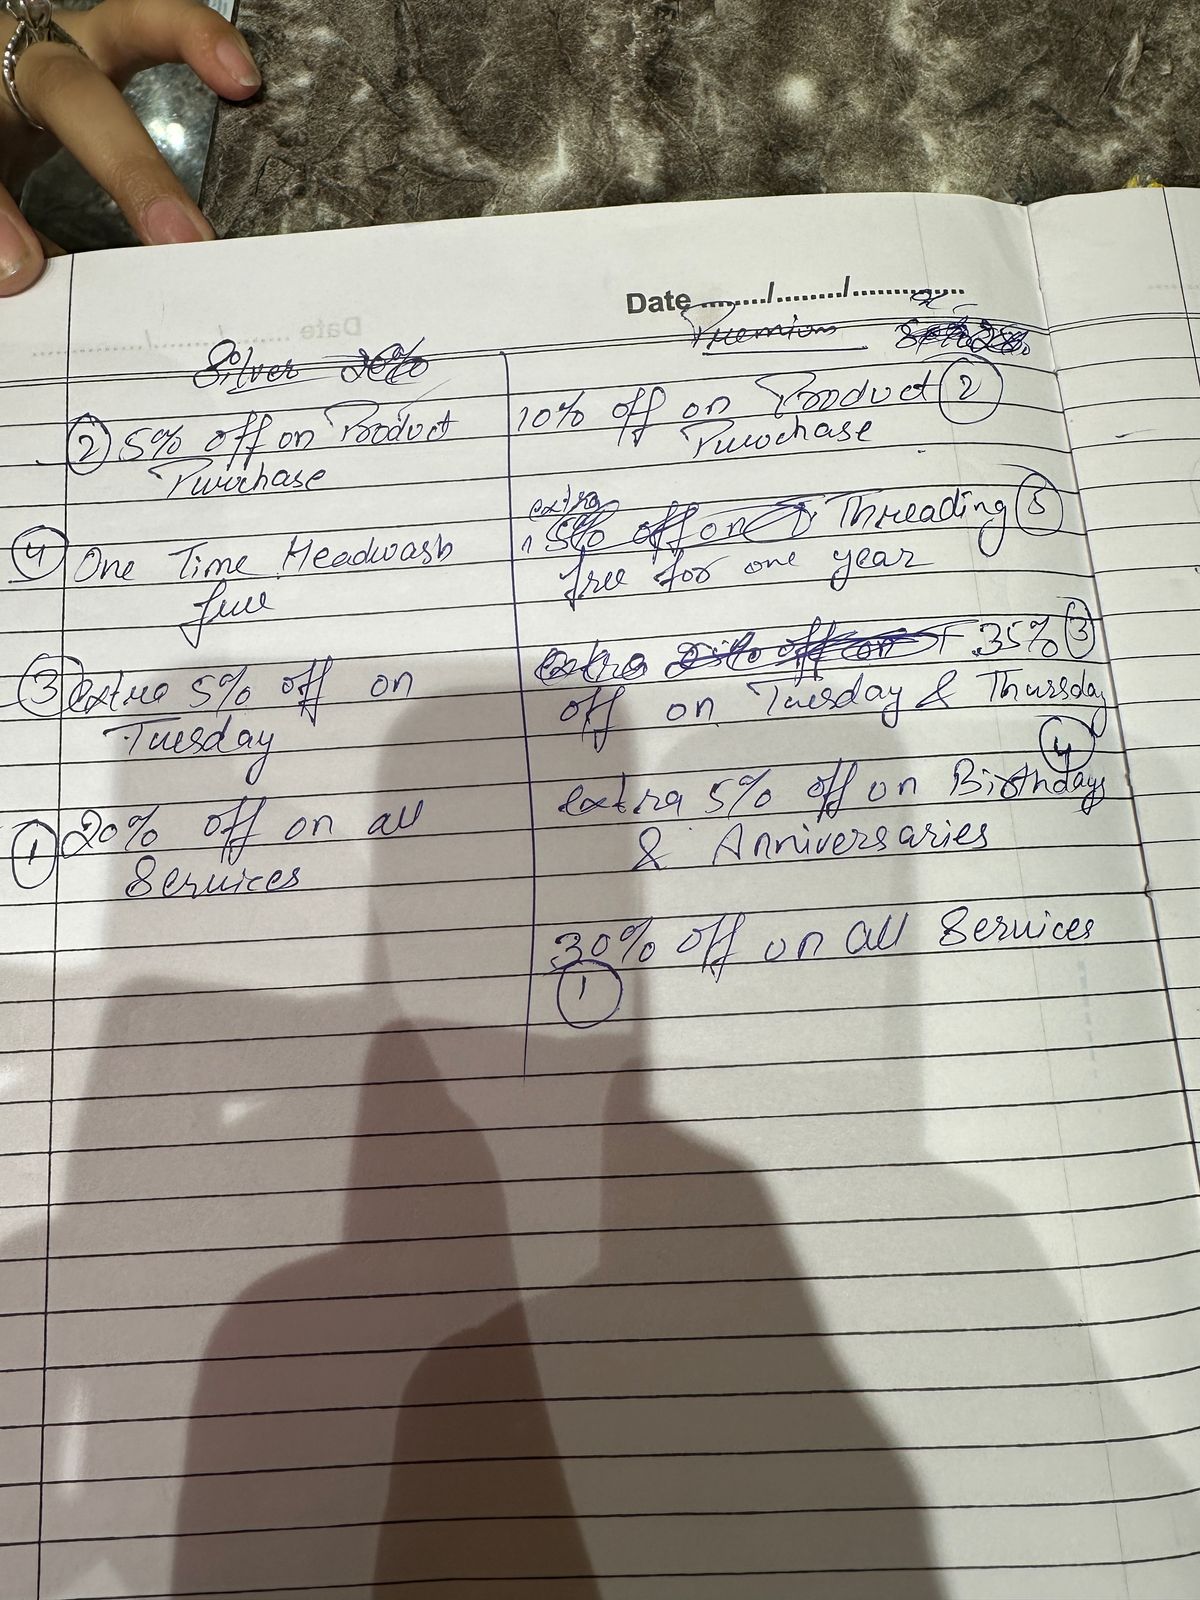 Date ......../......../............
Date
Silver 20%
Premium
② 5% off on Product
Purchase
④ One Time Headwash
free
③ extra 5% off on
Tuesday
① 20% off on all
Services
10% off on Product ②
Purchase
extra
5% off on Threading ⑤
free for one year
extra 35% ③
off on Tuesday & Thursday
④
extra 5% off on Birthdays
& Anniversaries
30% off on all Services
①